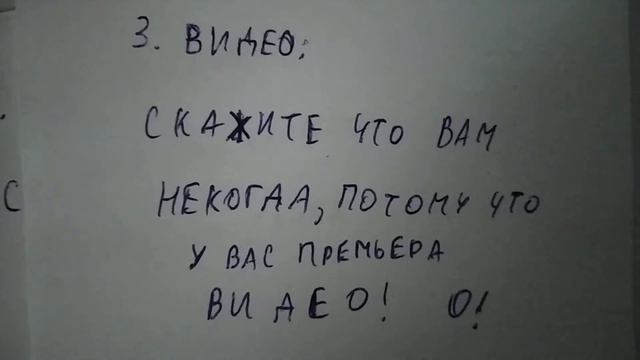 3. ВИДЕО.
СКАЖИТЕ ЧТО ВАМ
С
НЕКОГДА, ПОТОМУ ЧТО
У ВАС ПРЕМЬЕРА
ВИДЕО! О!